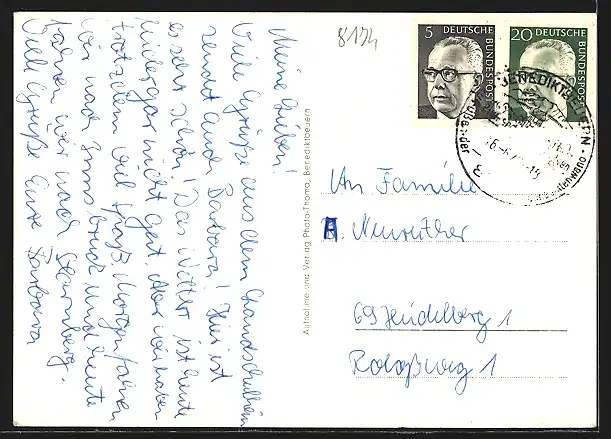 8174
5 DEUTSCHE BUNDESPOST
20 DEUTSCHE BUNDESPOST
Meine Lieben!
Viele Grüße aus dem Landschulheim
sendet Euch Barbara! Hier ist
es sehr schön! Das Wetter ist heute
leider gar nicht gut. Aber wir haben
trotzdem viel Spaß. Morgen fahren
wir nach Innsbruck und heute
fahren wir nach Starnberg.
Viele Grüße Eure Barbara
Aufnahme und Verlag Photo-Thoma, Benediktbeuern
An Familie
A. Neureither
69 Heidelberg 1
Roloßweg 1